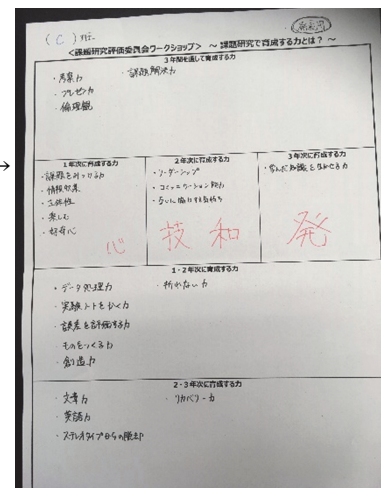 →
発表用
(C)班
<課題研究評価委員会ワークショップ> ～ 課題研究で育成する力とは？ ～
3年間を通して育成する力
・考察力 ・課題解決力
・プレゼン力
・倫理観
1年次に育成する力
・課題を見つける力
・情報収集
・主体性
・楽しむ
・好奇心
心
2年次に育成する力
・リーダーシップ
・コミュニケーション能力
・互いに協力する気持ち
技 和
3年次に育成する力
・学んだ知識を活かせる力
発
1・2年次に育成する力
・データ処理力 ・折れない力
・実験ノートをかく力
・誤差を評価する力
ものをつくる力
・創造力
2・3年次に育成する力
・文章力 ・リカバリー力
・英語力
・ステレオタイプからの脱却